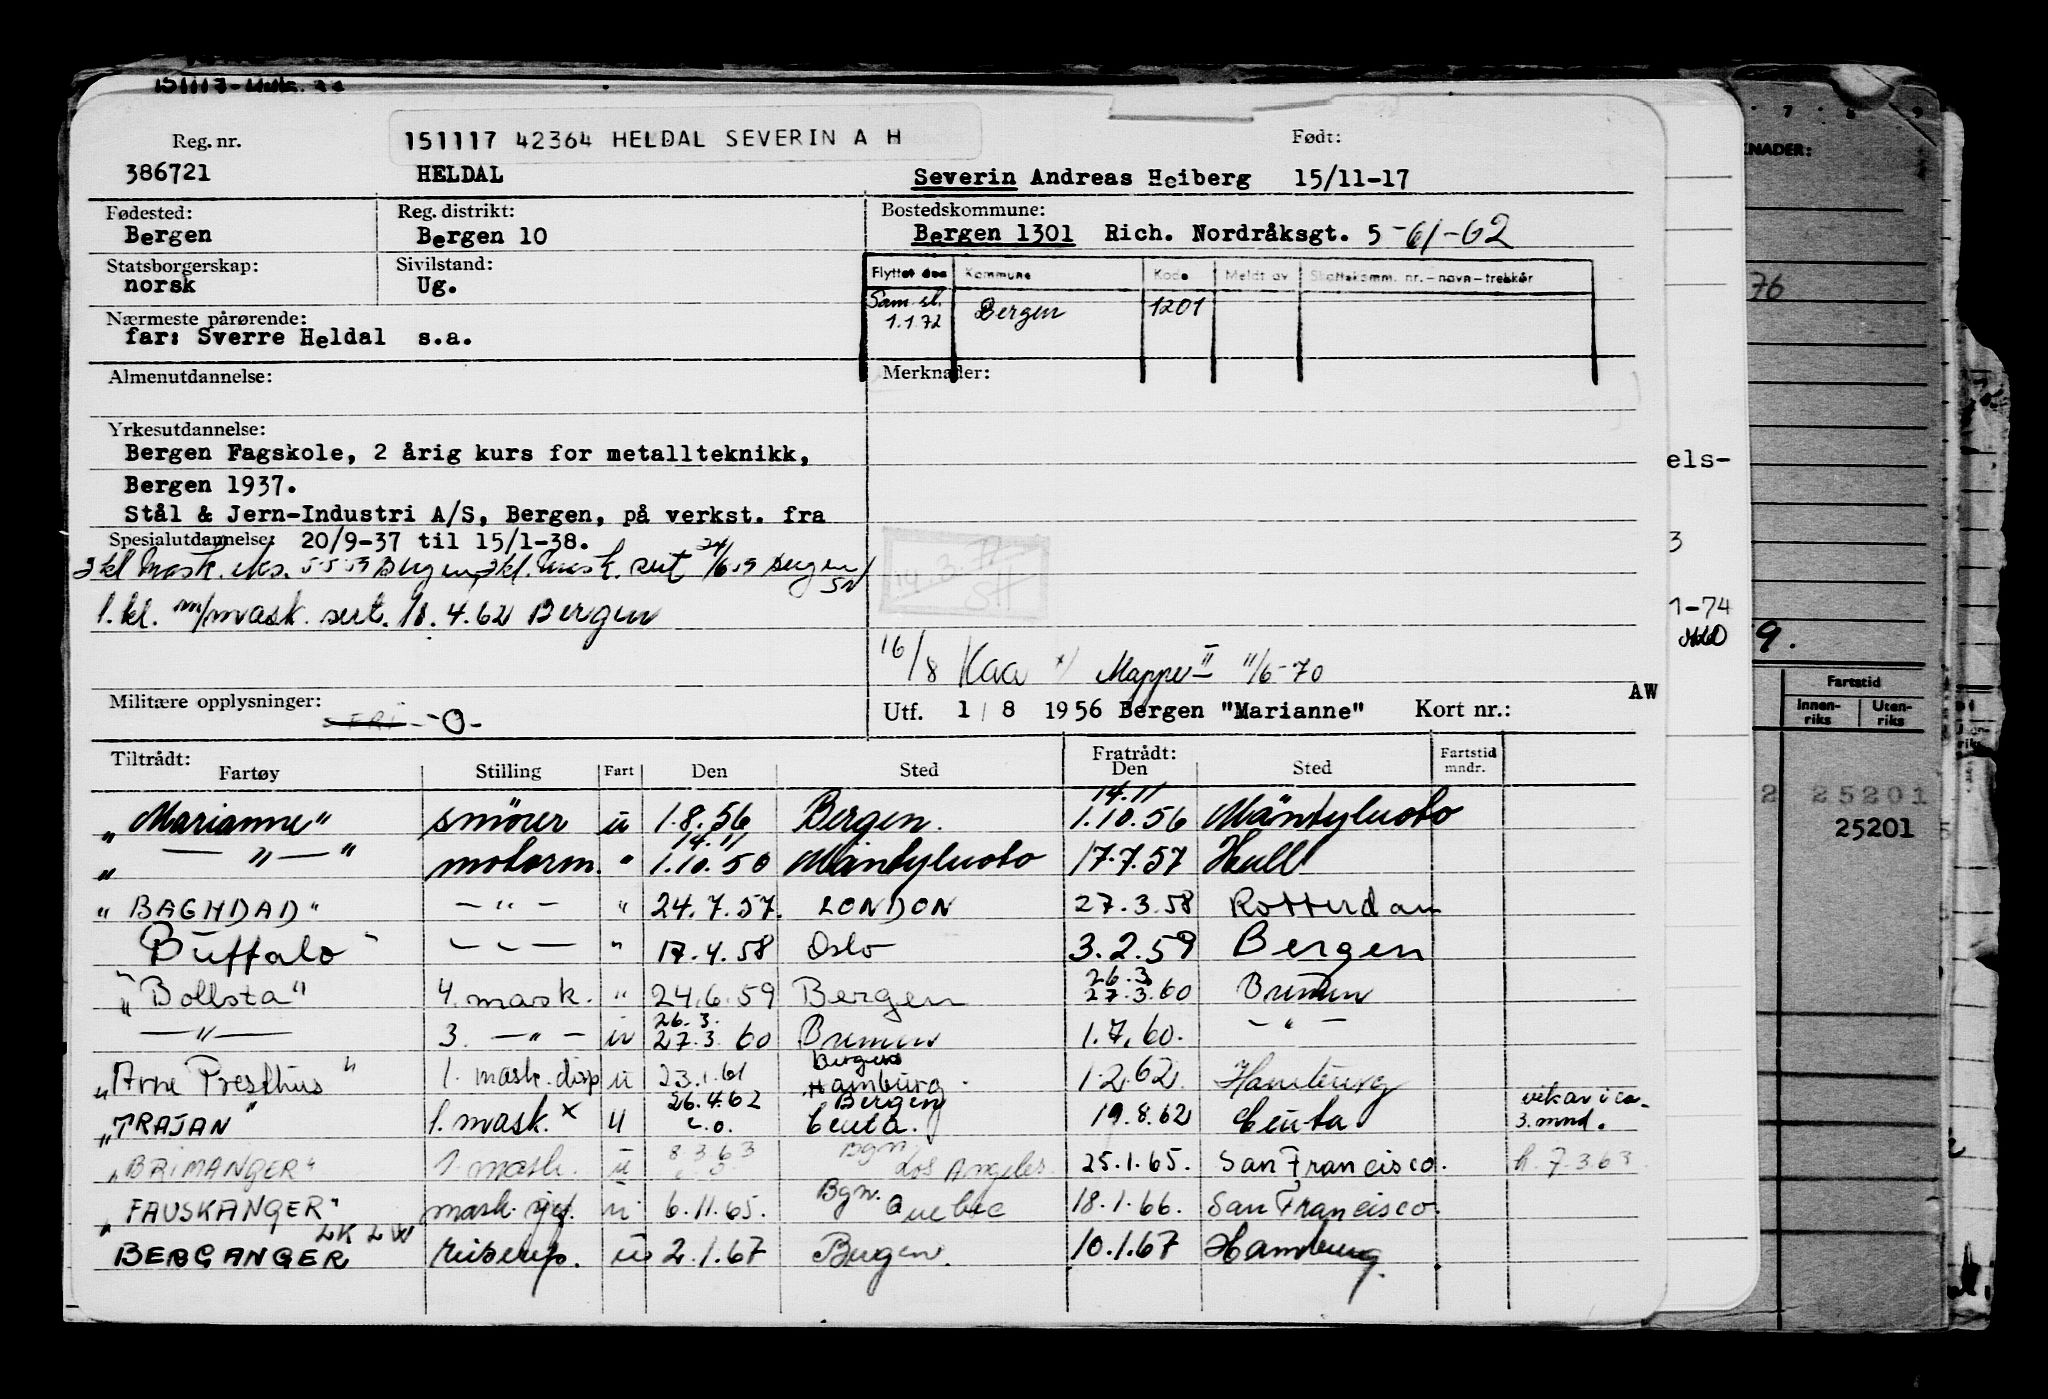 Reg. nr. 151117 42364 HELDAL SEVERIN A H Født:
386721 HELDAL Severin Andreas Heiberg 15/11-17
Fødested: Reg. distrikt: Bostedskommune:
Bergen Bergen 10 Bergen 1301 Rich. Nordråksgt. 5 -61-62
Statsborgerskap: Sivilstand: Flyttet den Kommune Kode Meldt av Skattekomm. nr. – navn – trekkår
norsk Ug. Sam. sl. 1.1.72 Bergen 1201
Nærmeste pårørende:
far: Sverre Heldal s.a.
Almenutdannelse: Merknader:
Yrkesutdannelse:
Bergen Fagskole, 2 årig kurs for metallteknikk,
Bergen 1937.
Stål & Jern-Industri A/S, Bergen, på verkst. fra
Spesialutdannelse: 20/9-37 til 15/1-38.
1. kl. m/mask. sert. 18.4.62 Bergen
16/8 Kaa x) Mappe II 11/6-70
Militære opplysninger: -0-
Utf. 1/8 1956 Bergen "Marianne" Kort nr.: AW
Tiltrådt: Fratrådt:
Fartøy Stilling Fart Den Sted Den Sted Fartstid mndr.
14.11
"Marianne" smörer u 1.8.56 Bergen. 1.10.56 Mäntyluoto
14.11
" — " — " motorm. " 1.10.56 Mäntyluoto 17.7.57 Hull
"BAGHDAD" — " — " 24.7.57. LONDON 27.3.58 Rotterdam
Buffalo" — " — " 17.4.58 Oslo 3.2.59 Bergen
26.3
"Bollsta" 4. mask. " 24.6.59 Bergen 27.3.60 Bremen
26.3.
— " — 3. — " — u 27.3.60 Bremen 1.7.60. — " —
Bergen
"Arne Presthus" 1. mask. disp u 23.1.61 Hamburg. 1.2.62. Hamburg
26.4.62 Bergen vikar i ca.
"TRAJAN" 1. mask. x u Ceuta. 19.8.62 Ceuta 3. mnd.
8 3 63 Bgn
"BRIMANGER" 1. mask. u Los Angeles. 25.1.65. San Francisco. h. 7.3.63
Bgn.
"FAUSKANGER" u 6.11.65. Quebec 18.1.66. San Francisco.
LK LW
BERGANGER u 2.1.67 Bergen. 10.1.67 Hamburg.
KNADER:
76
els-
3
1-74
9.
Fartstid
Innen-riks Uten-riks
2 25201
25201